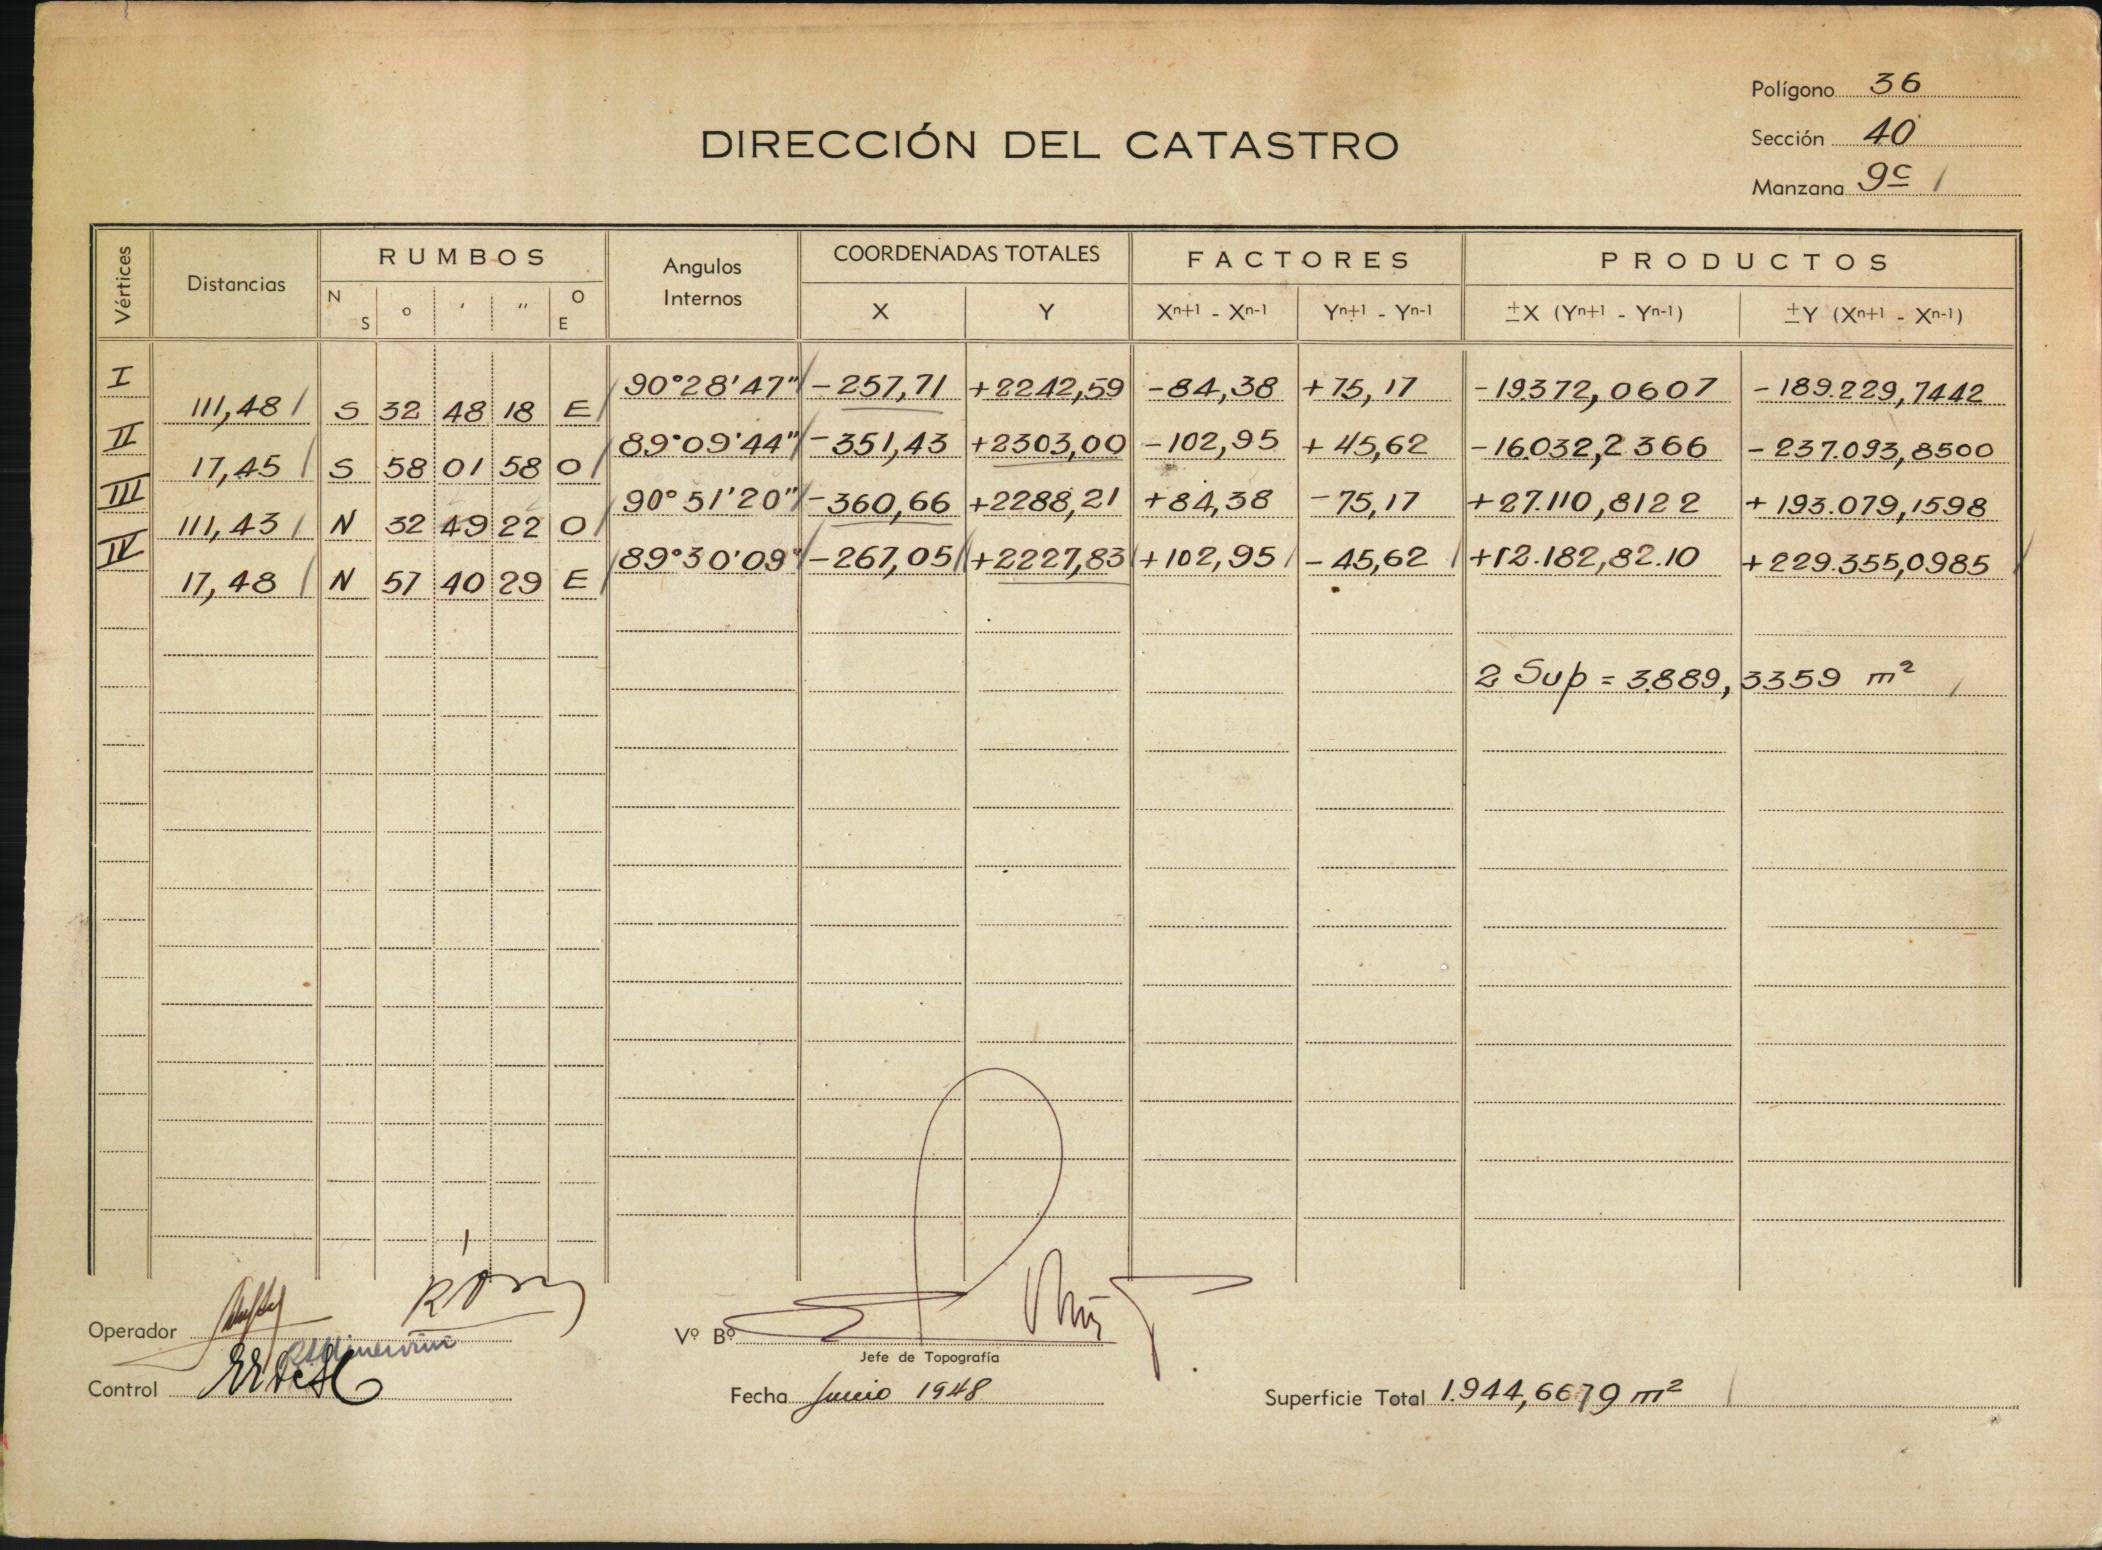 Polígono 36
DIRECCIÓN DEL CATASTRO
Sección 40
Manzana 9c
Vértices Distancias RUMBOS Angulos Internos COORDENADAS TOTALES FACTORES PRODUCTOS
N S o ′ ″ O E X Y Xn+1 - Xn-1 Yn+1 - Yn-1 ±X (Yn+1 - Yn-1) ±Y (Xn+1 - Xn-1)
I 90°28'47" -257,71 +2242,59 -84,38 +75,17 -19372,0607 -189.229,7442
111,48 S 32 48 18 E
II 89°09'44" -351,43 +2303,00 -102,95 +45,62 -16.032,2366 -237.093,8500
17,45 S 58 01 58 O
III 90°51'20" -360,66 +2288,21 +84,38 -75,17 +27.110,8122 +193.079,1598
111,43 N 32 49 22 O
IV 89°30'09" -267,05 +2227,83 +102,95 -45,62 +12.182,82.10 +229.355,0985
17,48 N 57 40 29 E
2 Sup = 3.889,3359 m²
Operador
Vº Bº
Jefe de Topografía
Control
Fecha Junio 1948
Superficie Total 1.944,6679 m²